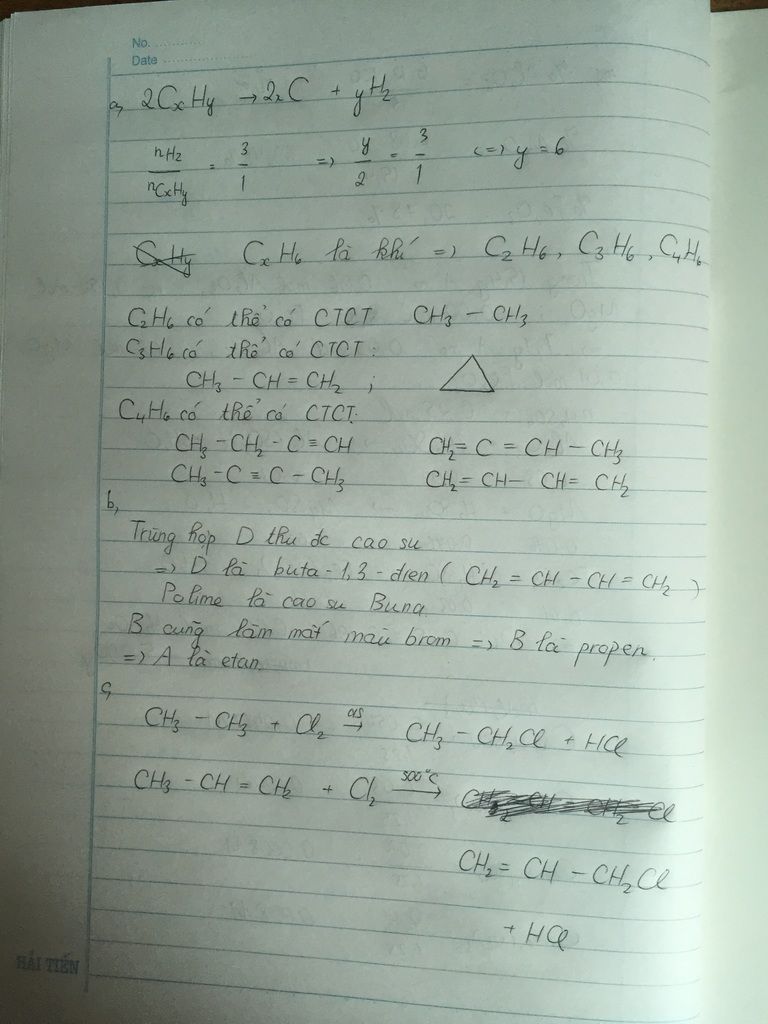 No. ............
Date ....................
a, 2CxHy → 2xC + yH2
nH2 / nCxHy = 3/1 => y/2 = 3/1 <=> y = 6
CxHy CxH6 là khí => C2H6, C3H6, C4H6
C2H6 có thể có CTCT CH3 - CH3
C3H6 có thể có CTCT:
CH3 - CH = CH2 ;
C4H6 có thể có CTCT:
CH3 - CH2 - C ≡ CH CH2 = C = CH - CH3
CH3 - C ≡ C - CH3 CH2 = CH - CH = CH2
b,
Trùng hợp D thu đc cao su
=> D là buta - 1,3 - đien ( CH2 = CH - CH = CH2 )
Polime là cao su Buna
B cũng làm mất màu brom => B là propen.
=> A là etan.
c,
CH3 - CH3 + Cl2 –as→ CH3 - CH2Cl + HCl
CH3 - CH = CH2 + Cl2 –500°C→
CH2 = CH - CH2Cl
+ HCl
HẢI TIẾN